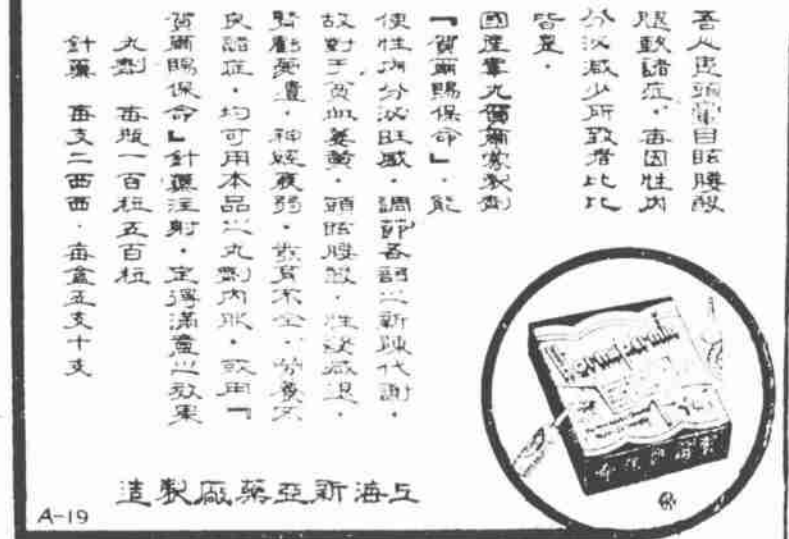 吾人患頭暈目眩腰酸
腿軟諸症，每因性內
分泌減少所致者比比
皆是．
國產睪丸賀爾蒙製劑
『賀爾賜保命』，能
使性內分泌旺盛，調節各司之新陳代謝，
故對于貧血萎黃，頭眩腰酸，性慾減退，
神經衰弱，發育不全，營養不
良諸症，均可用本品之丸劑內服，或用『
賀爾賜保命』針藥注射，定得滿意之效果
丸劑 每瓶一百粒五百粒
針藥 每支二西西．每盒五支十支
命保賜爾賀
上海新亞藥廠製造
A-19